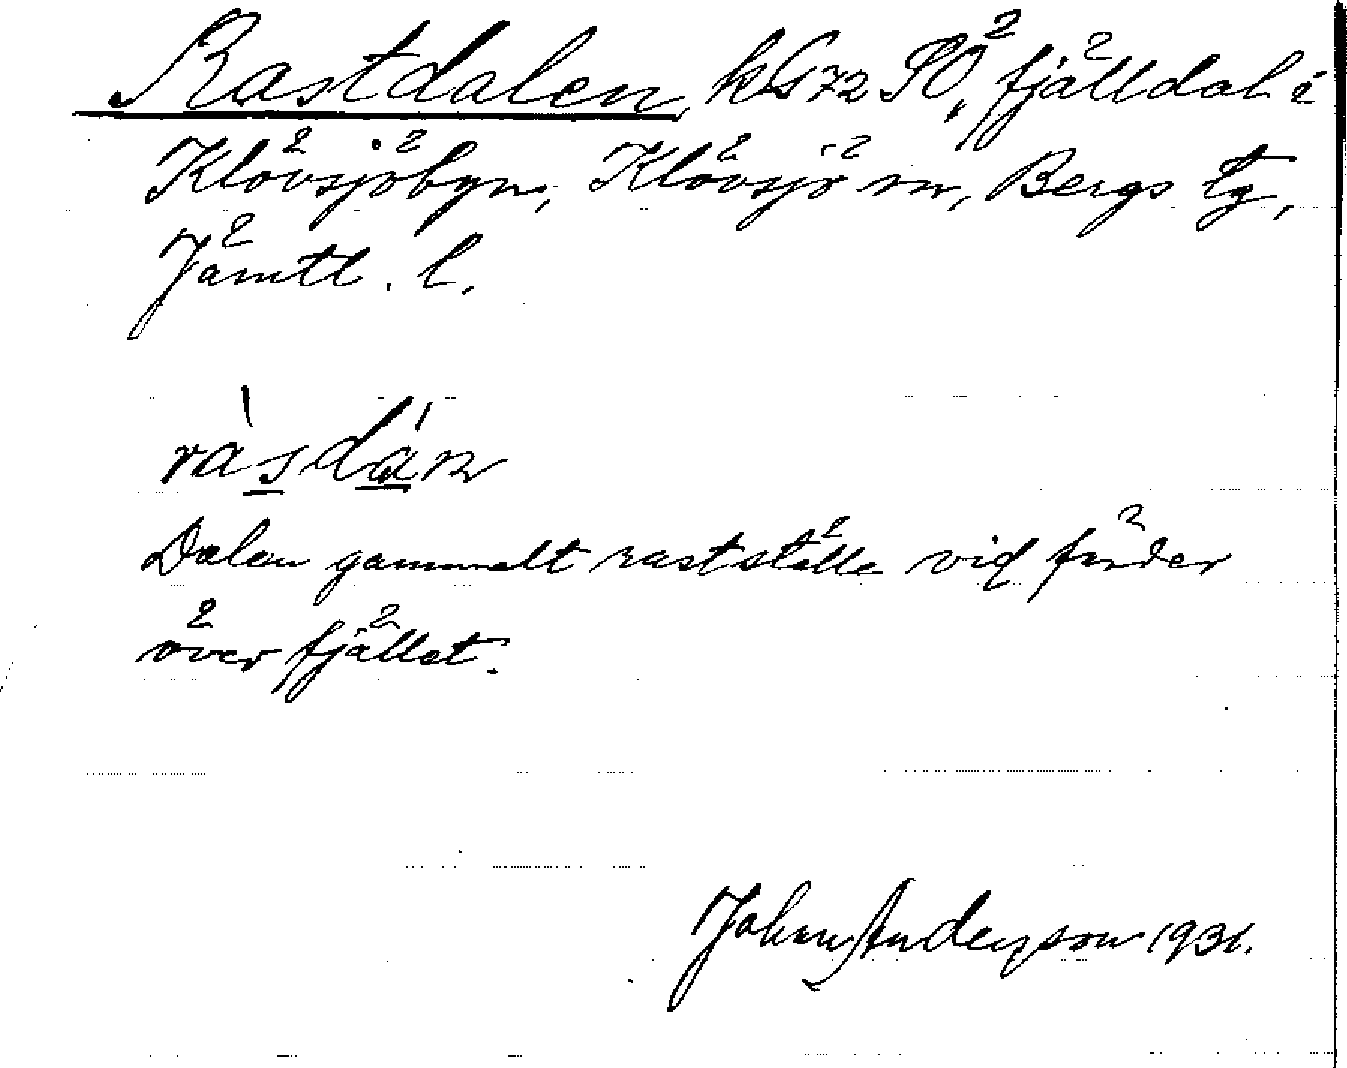 Rastdalen, kG72 SÖ, fjälldal i
Klövsjöbyn, Klövsjö sn, Bergs tg,
Jämtl. l.
ràsdán
Dalen gammalt rastställe vid färder
över fjället.
Johan Anderson 1931.